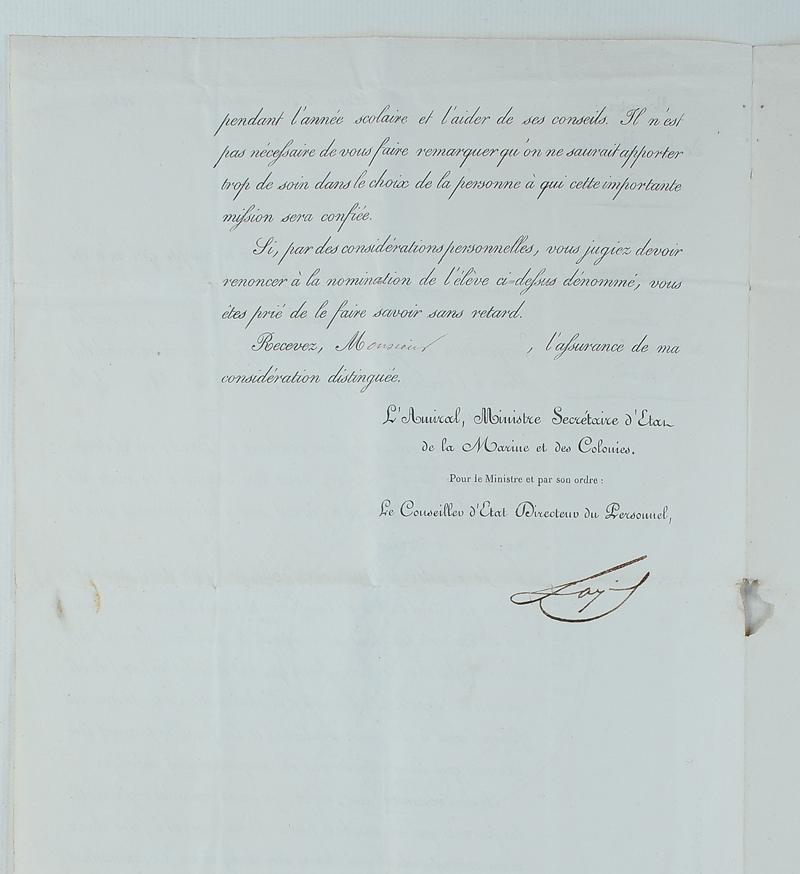 pendant l'année scolaire et l'aider de ses conseils. Il n'est
pas nécessaire de vous faire remarquer qu'on ne saurait apporter
trop de soin dans le choix de la personne à qui cette importante
mission sera confiée.
Si, par des considérations personnelles, vous jugiez devoir
renoncer à la nomination de l'élève ci-dessus dénommé, vous
êtes prié de le faire savoir sans retard.
Recevez, Monsieur, l'assurance de ma
considération distinguée.
L'Amiral, Ministre Secrétaire d'Etat
de la Marine et des Colonies.
Pour le Ministre et par son ordre :
Le Conseiller d'Etat Directeur du Personnel,